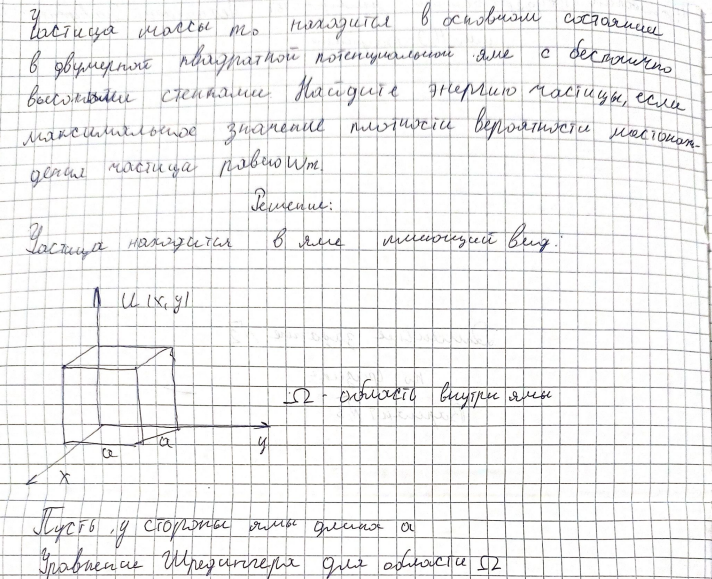 Частица массы m₀ находится в основном состоянии
в двумерной квадратной потенциальной яме с бесконечно
высокими стенками Найдите энергию частицы, если
максимальное значение плотности вероятности местонахож-
дения частица равно Wm.
Решение:
Частица находится в яме имеющий вид:
U(x, y)
Ω - область внутри ямы
a
a
y
x
Пусть у стороны ямы длина a
Уравнение Шредингера для области Ω